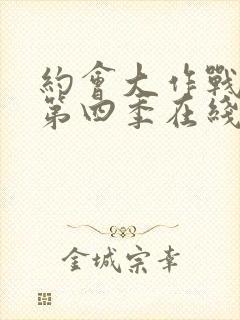 約會大作戰
第四季在綫
金城宗幸